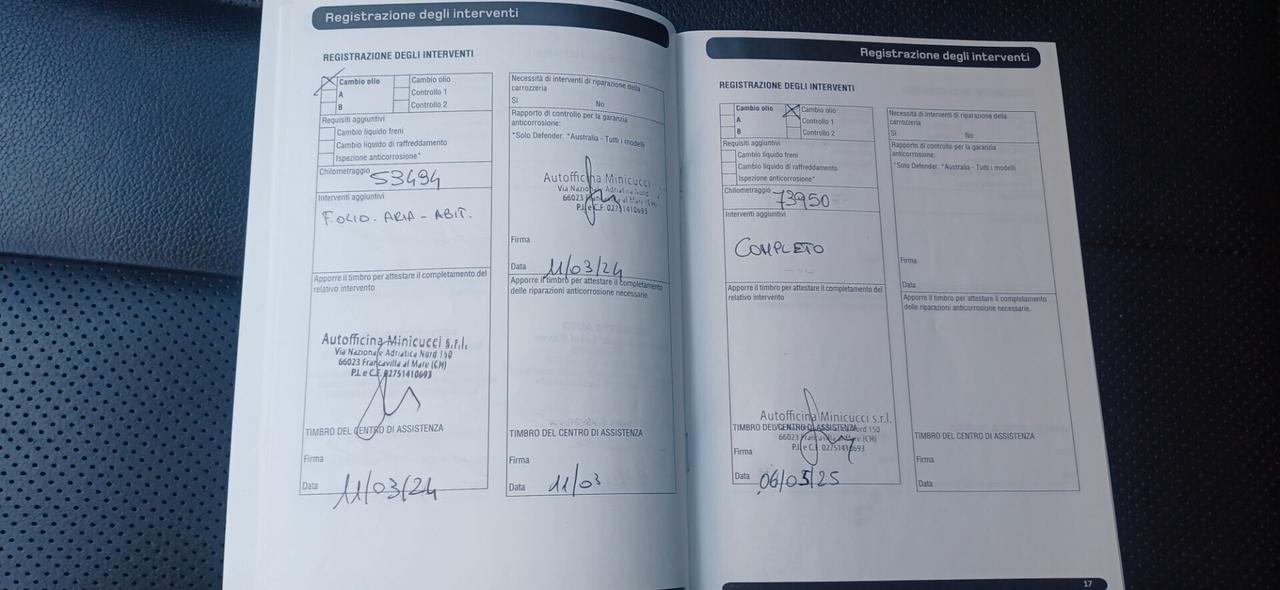 Registrazione degli interventi
REGISTRAZIONE DEGLI INTERVENTI
Cambio olio
A
B
Cambio olio
Controllo 1
Controllo 2
Requisiti aggiuntivi
Cambio liquido freni
Cambio liquido di raffreddamento
Ispezione anticorrosione*
Chilometraggio 53494
Interventi aggiuntivi
F. OLIO - ARIA - ABIT.
Apporre il timbro per attestare il completamento del
relativo intervento
Autofficina Minicucci s.r.l.
Via Nazionale Adriatica Nord 150
66023 Francavilla al Mare (CH)
P.I. e C.F. 02751410693
TIMBRO DEL CENTRO DI ASSISTENZA
Firma
Data 11/03/24
Necessità di interventi di riparazione della
carrozzeria
Sì No
Rapporto di controllo per la garanzia
anticorrosione:
*Solo Defender. *Australia - Tutti i modelli
Autofficina Minicucci
Via Nazionale Adriatica Nord
66023
P.I. e C.F. 02751410693
Firma
Data 11/03/24
Apporre il timbro per attestare il completamento
delle riparazioni anticorrosione necessarie.
TIMBRO DEL CENTRO DI ASSISTENZA
Firma
Data 11/03
Registrazione degli interventi
REGISTRAZIONE DEGLI INTERVENTI
Cambio olio
A
B
Cambio olio
Controllo 1
Controllo 2
Requisiti aggiuntivi
Cambio liquido freni
Cambio liquido di raffreddamento
Ispezione anticorrosione*
Chilometraggio 73950
Interventi aggiuntivi
COMPLETO
Apporre il timbro per attestare il completamento del
relativo intervento
Autofficina Minicucci s.r.l.
TIMBRO DEL CENTRO DI ASSISTENZA
Nord 150
66023 Francavilla al Mare (CH)
P.I. e C.F. 02751410693
Firma
Data 06/05/25
Necessità di interventi di riparazione della
carrozzeria
Sì No
Rapporto di controllo per la garanzia
anticorrosione:
*Solo Defender. *Australia - Tutti i modelli
Firma
Data
Apporre il timbro per attestare il completamento
delle riparazioni anticorrosione necessarie.
TIMBRO DEL CENTRO DI ASSISTENZA
Firma
Data
17